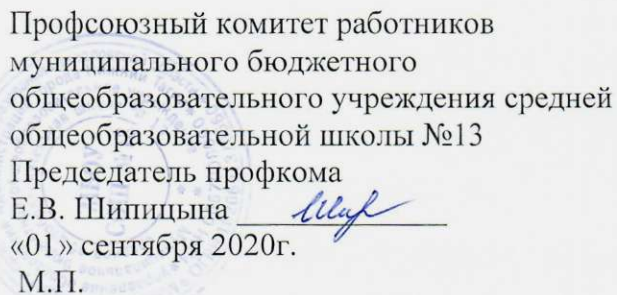 Профсоюзный комитет работников
муниципального бюджетного
общеобразовательного учреждения средней
общеобразовательной школы №13
Председатель профкома
Е.В. Шипицына
«01» сентября 2020г.
М.П.